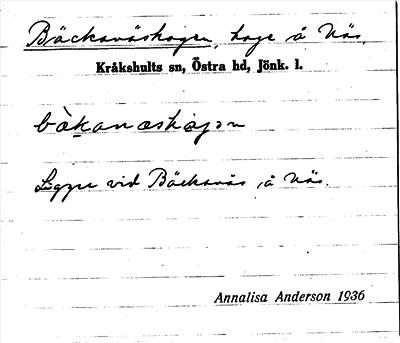 Bäckanäshagen, hage å Näs.
Kråkshults sn, Östra hd, Jönk. l.
Ligger vid Bäckanäs, å Näs.
Annalisa Anderson 1936